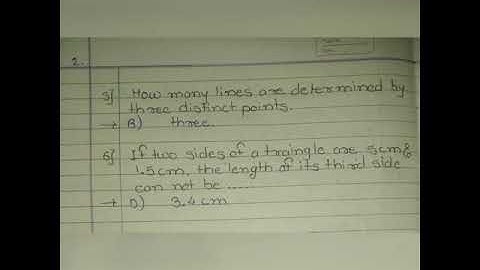 2.
5} How many lines are determined by
three distinct points.
→ B) three.
6} If two sides of a traingle are 5cm &
1.5cm, the length of its third side
can not be ......
→ D) 3.4cm